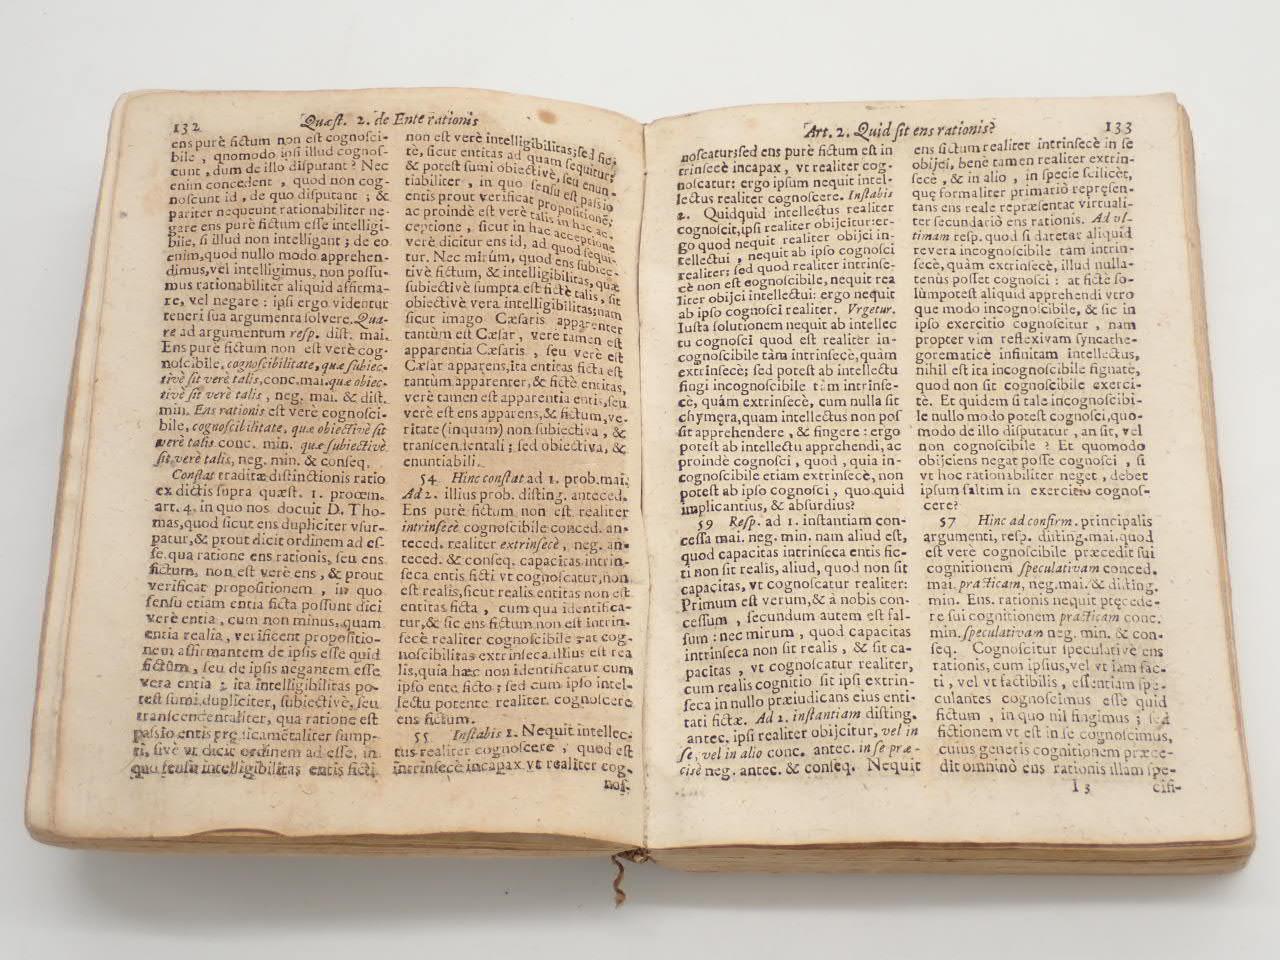 132
Quæst. 2. de Ente rationis
ens purè fictum non est cognosci-
bile, quomodo ipsi illud cognos-
cunt, dum de illo disputant? Nec
enim concedent, quod non cog-
noscunt id, de quo disputant; &
pariter nequeunt rationabiliter ne-
gare ens purè fictum esse intelligi-
bile, si illud non intelligant; de eo
enim, quod nullo modo apprehen-
dimus, vel intelligimus, non possu-
mus rationabiliter aliquid affirma-
re, vel negare: ipsi ergo videntur
teneri sua argumenta solvere. Qua-
re ad argumentum resp. dist. mai.
Ens purè fictum non est verè cog-
noscibile, cognoscibilitate, quæ subiec-
tivè sit verè talis, conc. mai. quæ obiec-
tivè sit verè talis, neg. mai. & dist.
min. Ens rationis est verè cognosci-
bile, cognoscibilitate, quæ obiectivè sit
verè talis conc. min. quæ subiectivè
sit verè talis, neg. min. & conseq.
Constat traditæ distinctionis ratio
ex dictis supra quæst. 1. proœm.
art. 4. in quo nos docuit D. Tho-
mas, quod sicut ens dupliciter vsur-
patur, & prout dicit ordinem ad es-
se. qua ratione ens rationis, seu ens
fictum, non est verè ens, & prout
verificat propositionem, in quo
sensu etiam entia ficta possunt dici
verè entia, cum non minus, quam
entia realia, verificent propositio-
nem affirmantem de ipsis esse quid
fictum, seu de ipsis negantem esse
vera entia; ita intelligibilitas po-
test sumi dupliciter, subiectivè, seu
transcendentaliter, qua ratione est
passio entis prædicamẽtaliter sump-
ti, sivè vt dicit ordinem ad esse, in
quo sensu intelligibilitas entis ficti
non est verè intelligibilitas; sed fic-
tè, sicut entitas ad quam sequitur;
& potest sumi obiectivè, seu enun-
tiabiliter, in quo sensu est passio
entis prout verificat propositionẽ;
ac proindè est verè talis in hac ac-
ceptione, sicut in hac acceptione
verè dicitur ens id, ad quod sequi-
tur. Nec mirum, quod ens subiec-
tivè fictum, & intelligibilitas, quæ
subiectivè sumpta est fictè talis, sit
obiectivè vera intelligibilitas; nam
sicut imago Cæsaris apparenter
tantùm est Cæsar, verè tamen est
apparentia Cæsaris, seu verè est
Cæsar apparens, ita entitas ficta est
tantùm apparenter, & fictè entitas,
verè tamen est apparentia entis, seu
verè est ens apparens, & fictum, ve-
ritate (inquam) non subiectiva, &
transcendentali; sed obiectiva, &
enuntiabili.
54 Hinc constat ad 1. prob. mai.
Ad 2. illius prob. disting. anteced.
Ens purè fictum non est realiter
intrinsecè cognoscibile conced. an-
teced. realiter extrinsecè, neg. an-
teced. & conseq. capacitas intrin-
seca entis ficti vt cognoscatur, non
est realis, sicut realis entitas non est
entitas ficta, cum qua identifica-
tur, & sic ens fictum non est intrin-
secè realiter cognoscibile: at cog-
noscibilitas extrinseca illius est rea
lis, quia hæc non identificatur cum
ipso ente ficto; sed cum ipso intel-
lectu potente realiter cognoscere
ens fictum.
55 Instabis 1. Nequit intellec-
tus realiter cognoscere, quod est
intrinsecè incapax vt realiter cog-
nos-
Art. 2. Quid sit ens rationis?
133
noscatur; sed ens purè fictum est in
trinsecè incapax, vt realiter cog-
noscatur: ergo ipsum nequit intel-
lectus realiter cognoscere. Instabis
2. Quidquid intellectus realiter
cognoscit, ipsi realiter obijcitur: er-
go quod nequit realiter obijci in-
tellectui, nequit ab ipso cognosci
realiter: sed quod realiter intrinse-
cè non est cognoscibile, nequit rea
liter obijci intellectui: ergo nequit
ab ipso cognosci realiter. Vrgetur.
Iusta solutionem nequit ab intellec
tu cognosci quod est realiter in-
cognoscibile tàm intrinsecè, quàm
extrinsecè; sed potest ab intellectu
fingi incognoscibile tàm intrinse-
cè, quàm extrinsecè, cum nulla sit
chymęra, quam intellectus non pos
sit apprehendere, & fingere: ergo
potest ab intellectu apprehendi, ac
proindè cognosci, quod, quia in-
cognoscibile etiam extrinsecè, non
potest ab ipso cognosci, quo quid
implicantius, & absurdius?
59 Resp. ad 1. instantiam con-
cessa mai. neg. min. nam aliud est,
quod capacitas intrinseca entis fic-
ti non sit realis, aliud, quod non sit
capacitas, vt cognoscatur realiter:
Primum est verum, & à nobis con-
cessum, secundum autem est fal-
sum: nec mirum, quod capacitas
intrinseca non sit realis, & sit ca-
pacitas, vt cognoscatur realiter,
cum realis cognitio sit ipsi extrin-
seca in nullo præiudicans eius enti-
tati fictæ. Ad 2. instantiam disting.
antec. ipsi realiter obijcitur, vel in
se, vel in alio conc. antec. in se præ-
cisè neg. antec. & conseq. Nequit
ens fictum realiter intrinsecè in se
obijci, benè tamen realiter extrin-
secè, & in alio, in specie scilicèt,
quę formaliter primariò repręsen-
tans ens reale repræsentat virtuali-
ter secundariò ens rationis. Ad vl-
timam resp. quod si daretur aliquid
revera incognoscibile tam intrin-
secè, quàm extrinsecè, illud nulla-
tenùs posset cognosci: at fictè so-
lùm potest aliquid apprehendi vtro
que modo incognoscibile, & sic in
ipso exercitio cognoscitur, nam
propter vim reflexivam syncathe-
gorematicè infinitam intellectus,
nihil est ita incognoscibile signatè,
quod non sit cognoscibile exerci-
tè. Et quidem si tale incognoscibi-
le nullo modo potest cognosci, quo-
modo de illo disputatur, an sit, vel
non cognoscibile? Et quomodo
obijciens negat posse cognosci, si
vt hoc rationabiliter neget, debet
ipsum saltim in exercitio cognos-
cere?
57 Hinc ad confirm. principalis
argumenti, resp. disting. mai. quod
est verè cognoscibile præcedit sui
cognitionem speculativam conced.
mai. practicam, neg. mai. & disting.
min. Ens. rationis nequit pręcede-
re sui cognitionem practicam conc.
min. speculativam neg. min. & con-
seq. Cognoscitur speculativè ens
rationis, cum ipsius, vel vt iam fac-
ti, vel vt factibilis, essentiam spe-
culantes cognoscimus esse quid
fictum, in quo nil fingimus; sed
fictionem vt est in se cognoscimus,
cuius generis cognitionem præce-
dit omninò ens rationis illam spe-
I 3
cifi-